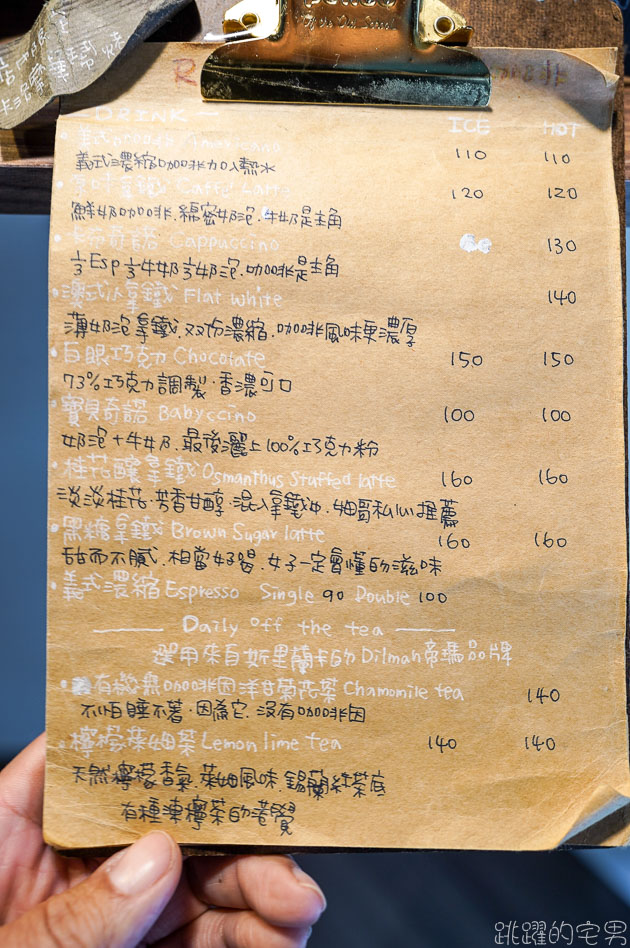 DRINK
ICE HOT
Americano 110 110
義式濃縮咖啡加入熱水
拿鐵 Caffe Latte 120 120
鮮奶咖啡.綿密奶泡.牛奶是主角
卡布奇諾 Cappuccino 130
⅓Esp ⅓牛奶 ⅓奶泡.咖啡是主角
澳式小拿鐵 Flat white 140
薄奶泡拿鐵.双份濃縮.咖啡風味更濃厚
白眼巧克力 Chocolate 150 150
73%巧克力調製.香濃可口
寶貝奇諾 Babyccino 100 100
奶泡+牛奶.最後灑上100%巧克力粉
桂花釀拿鐵 Osmanthus Staffed latte 160 160
淡淡桂花.芳香甘醇.混入拿鐵中.細哥私心推薦
黑糖拿鐵 Brown Sugar latte 160 160
甜而不膩.相當好喝.女子一定會懂的滋味
義式濃縮 Espresso Single 90 Double 100
Daily off the tea
選用來自斯里蘭卡的Dilmah帝瑪品牌
有機無咖啡因洋甘菊花茶 Chamomile tea 140
不怕睡不著.因為它.沒有咖啡因
檸檬萊姆茶 Lemon lime tea 140 140
天然檸檬香氣.萊姆風味.錫蘭紅茶底
有種凍檸茶的著覺
跳躍的宅男